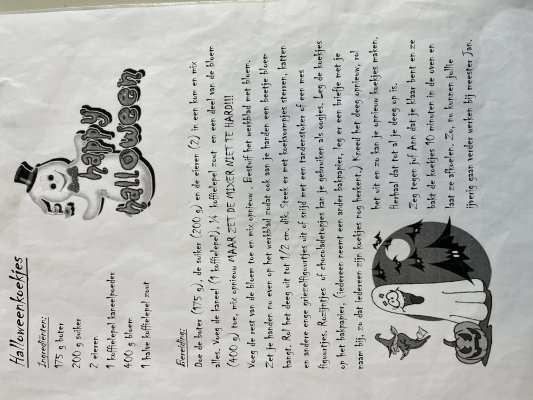 Halloweenkoekjes
Ingrediënten:
175 g boter
200 g suiker
2 eieren
1 koffielepel kaneelpoeder
400 g bloem
1 halve koffielepel zout
happy
halloween
Bereiding:
Doe de boter (175 g), de suiker (200 g) en de eieren (2) in een kom en mix
alles. Voeg de kaneel (1 koffielepel), ½ koffielepel zout en een deel van de bloem
(400 g) toe, mix opnieuw MAAR ZET DE MIXER NIET TE HARD!!!
Voeg de rest van de bloem toe en mix opnieuw. Bestuif het werkblad met bloem.
Zet je handen nu even op het werkblad zodat ook aan je handen een beetje bloem
hangt. Rol het deeg uit tot 1/2 cm. dik. Steek er met koekvormpjes sterren, katten
en andere enge griezelfiguurtjes uit of snijd met een tandenstoker of een mes
figuurtjes. Rozijntjes of chocoladetopjes kan je gebruiken als oogjes. Leg de koekjes
op het bakpapier, (iedereen neemt een ander bakpapier, leg er een briefje met je
naam bij, zo dat iedereen zijn koekjes nog herkent.) Kneed het deeg opnieuw, rol
het uit en zo kan je opnieuw koekjes maken.
Herhaal dat tot al je deeg op is.
Zeg tegen juf Ann dat je klaar bent en ze
bakt de koekjes 10 minuten in de oven en
laat ze afkoelen. Zo, nu kunnen jullie
ijverig gaan verder werken bij meester Jan.